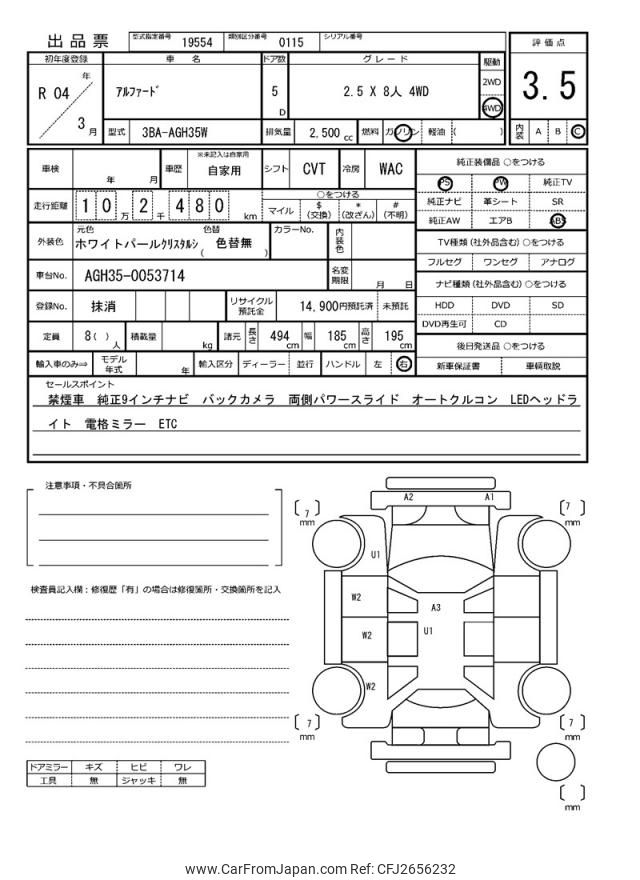 出品票 型式指定番号 19554 類別区分番号 0115 シリアル番号
評価点
3.5
初年度登録 車名 ドア数 グレード 駆動
R 04 年 3 月
アルファード 5 D 2.5 X 8人 4WD
2WD
4WD
型式 3BA-AGH35W 排気量 2,500 cc 燃料 ガソリン 軽油 ( )
内装 A B C
車検 年 月 車歴 ※未記入は自家用 自家用 シフト CVT 冷房 WAC
走行距離 10万 2千 480 km
○をつける
マイル $(交換) *(改ざん) #(不明)
外装色 元色 ホワイトパールクリスタルシ 色替 ( 色替無 ) カラーNo. 内装色
車台No. AGH35-0053714 名変期限 月 日
登録No. 抹消 リサイクル預託金 14,900円預託済 未預託
定員 8( )人 積載量 kg 諸元 長さ 494 cm 幅 185 cm 高さ 195 cm
輸入車のみ⇒ モデル年式 年 輸入区分 ディーラー 並行 ハンドル 左 右
純正装備品 ○をつける
PS PW 純正TV
純正ナビ 革シート SR
純正AW エアB ABS
TV種類 (社外品含む) ○をつける
フルセグ ワンセグ アナログ
ナビ種類 (社外品含む) ○をつける
HDD DVD SD
DVD再生可 CD
後日発送品 ○をつける
新車保証書 車輌取説
セールスポイント
禁煙車 純正9インチナビ バックカメラ 両側パワースライド オートクルコン LEDヘッドラ
イト 電格ミラー ETC
注意事項・不具合箇所
検査員記入欄：修復歴「有」の場合は修復箇所・交換箇所を記入
ドアミラー キズ ヒビ ワレ
工具 無 ジャッキ 無
A2 A1
( 7 ) mm
( 7 ) mm
U1
W2
A3
W2
U1
W2
( 7 ) mm
( 7 ) mm
( ) mm
www.CarFromJapan.com Ref: CFJ2656232